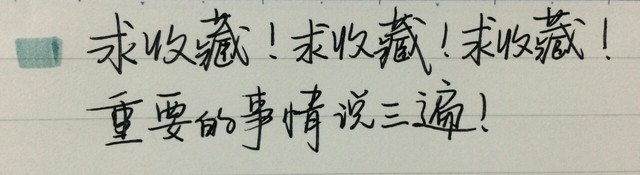 求收藏！求收藏！求收藏！
重要的事情说三遍！